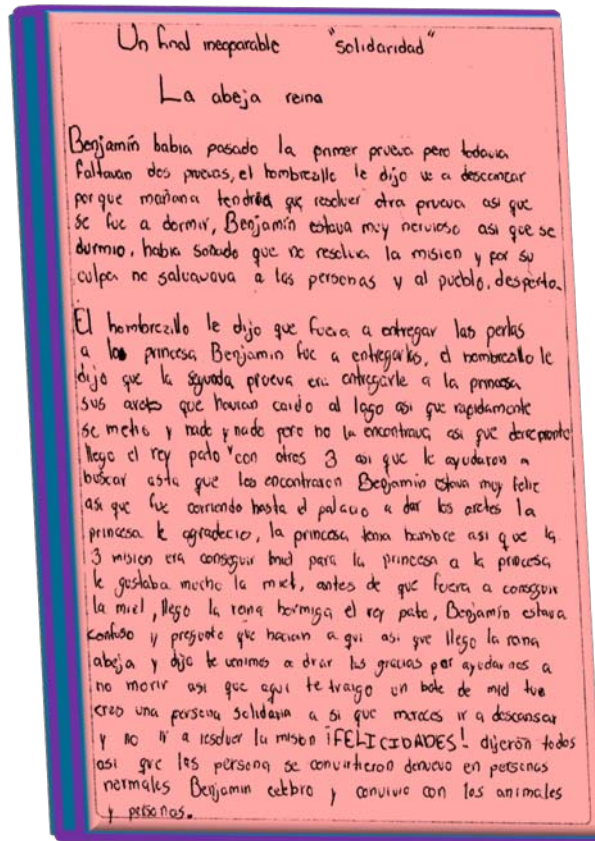 Un final incoparable "solidaridad"
La abeja reina
Benjamín habia pasado la primer prueva pero todavia
faltavan dos pruevas, el hombrezillo le dijo ve a descancar
porque mañana tendrás qe resolver otra prueva asi que
se fue a dormir, Benjamín estava muy nervioso asi que se
durmio, habia soñado que no resolvia la mision y por su
culpa no salvavava a las personas y al pueblo, desperto.
El hombrezillo le dijo que fuera a entregar las perlas
a la princesa Benjamin fue a entregarlas, el hombrezillo le
dijo que la segunda prueva era entregarle a la princesa
sus aretes que havian caido al lago asi que rapidamente
se metio y nado y nado pero no la encontrava, asi que derrepente
llego el rey pato con otros 3 asi que le ayudaron a
buscar asta que los encontraron Benjamin estava muy feliz
asi que fue corriendo hasta el palacio a dar los aretes la
princesa le agradecio, la princesa tenia hambre asi que la
3 mision era conseguir miel para la princesa a la princesa
le gustaba mucho la miel, antes de que fuera a conseguir
la miel, llego la reina hormiga el rey pato, Benjamín estava
confuso y pregunto que hacian a qui asi que llego la reina
abeja y dijo te venimos a drar las gracias por ayudarnos a
no morir asi que aqui te traigo un bote de miel tue
creo una persona solidaria a si que mereces ir a descansar
y no ir a resolver la mision ¡FELICIDADES! dijeron todos
asi que las persona se convirtieron denuevo en personas
normales Benjamin celebro y convivio con los animales
y personas.